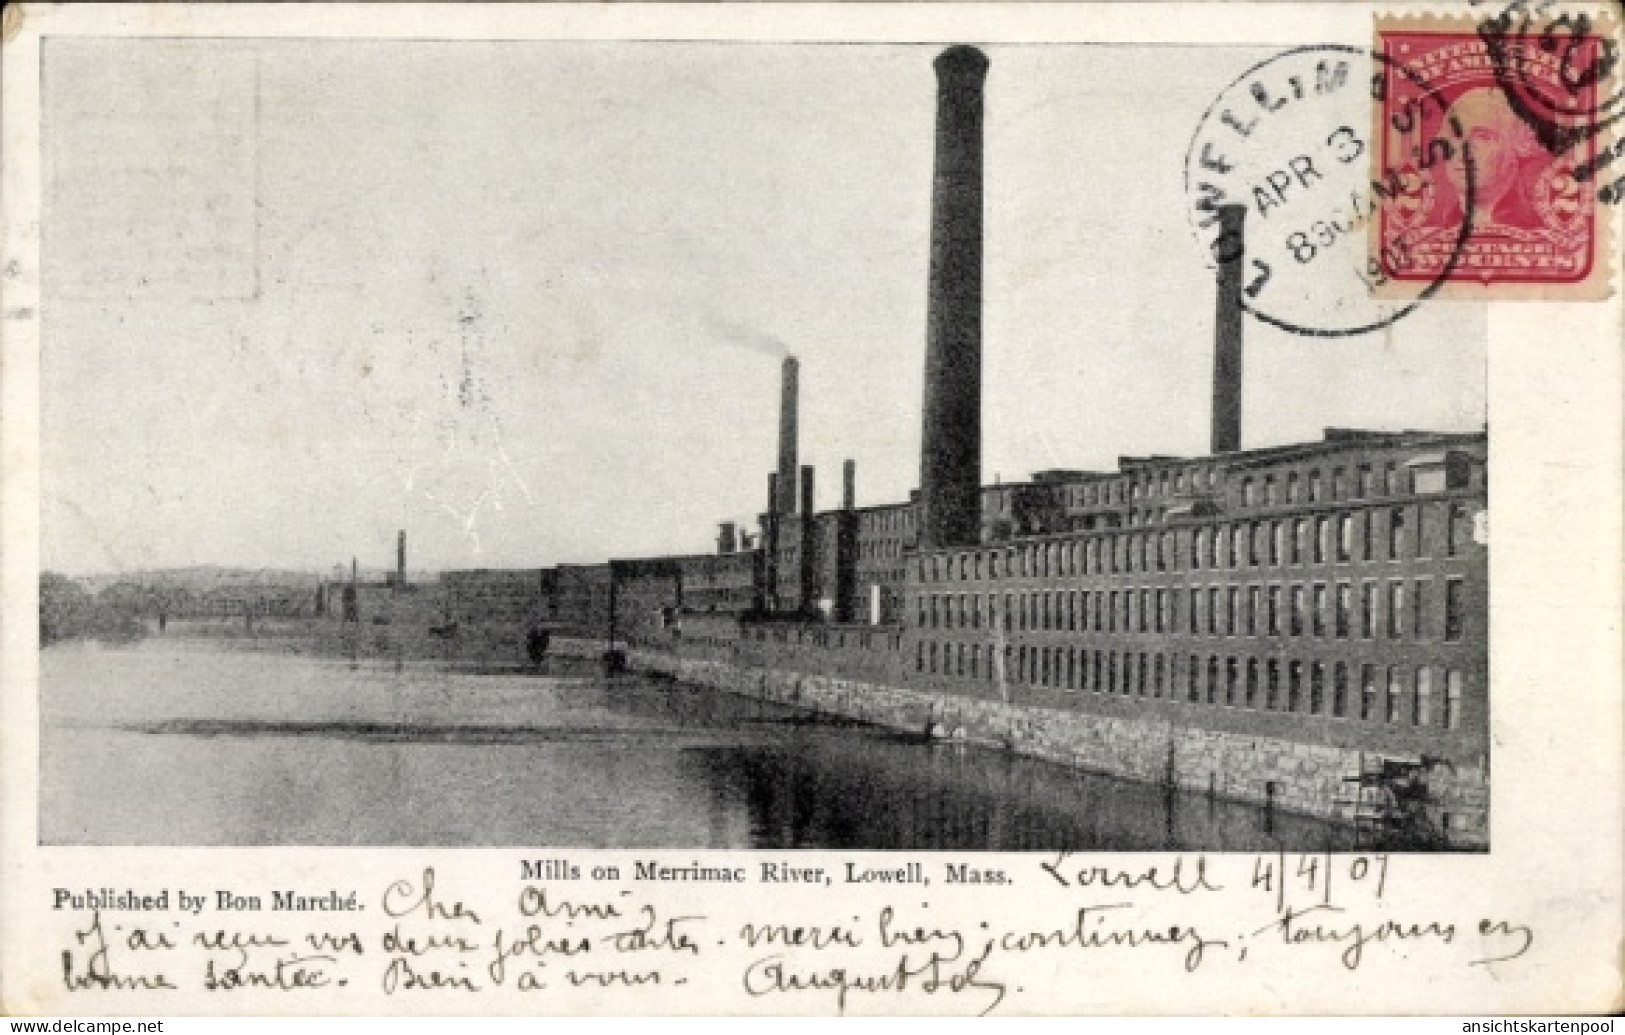 LOWELL, MASS
APR 3
830 AM
1907
UNITED STATES
OF AMERICA
2 2
POSTAGE
TWO CENTS
Mills on Merrimac River, Lowell, Mass. Lowell 4/4/07
Published by Bon Marché. Cher Ami,
J'ai reçu vos deux jolies cartes. merci bien; continuez; toujours en
bonne santé. Bien à vous. August
www.delcampe.net
ansichtskartenpool